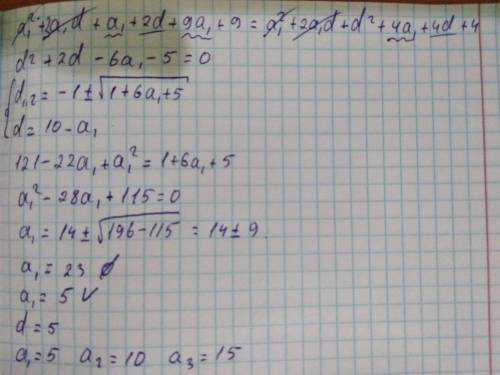 a₁² + 2a₁d + a₁ + 2d + 9a₁ + 9 = a₁² + 2a₁d + d² + 4a₁ + 4d + 4
d² + 2d - 6a₁ - 5 = 0
d₁,₂ = -1 ± √(1 + 6a₁ + 5)
d = 10 - a₁
121 - 22a₁ + a₁² = 1 + 6a₁ + 5
a₁² - 28a₁ + 115 = 0
a₁ = 14 ± √(196 - 115) = 14 ± 9.
a₁ = 23 ∅
a₁ = 5 V
d = 5
a₁ = 5 a₂ = 10 a₃ = 15